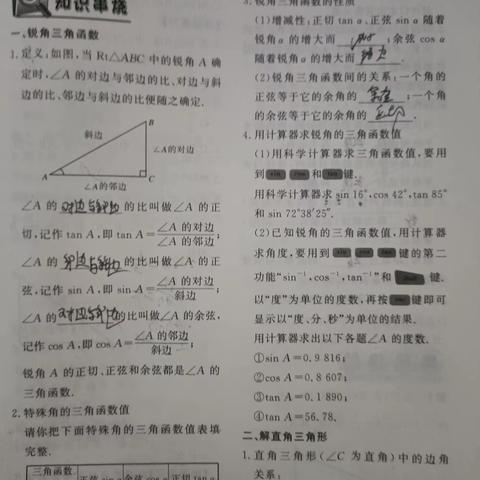 知识串烧
一、锐角三角函数
1. 定义:如图,当 Rt△ABC 中的锐角 A 确
定时,∠A 的对边与邻边的比、对边与斜
边的比、邻边与斜边的比便随之确定.
B
斜边
∠A的对边
A
C
∠A的邻边
∠A 的 对边与邻边 的比叫做∠A 的正
切,记作 tan A,即 tan A=∠A 的对边/∠A 的邻边;
∠A 的 对边与斜边 的比叫做∠A 的正
弦,记作 sin A,即 sin A=∠A 的对边/斜边;
∠A 的 的比叫做∠A 的余弦,
记作 cos A,即 cos A=∠A 的邻边/斜边;
锐角 A 的正切、正弦和余弦都是∠A 的
三角函数.
2. 特殊角的三角函数值
请你把下面特殊角的三角函数值表填
完整.
三角函数 正弦 sin α 余弦 cos α 正切 tan α
3. 锐角三角函数的性质
(1)增减性:正切 tan α、正弦 sin α 随着
锐角 α 的增大而 ;余弦 cos α
随着锐角 α 的增大而 .
(2)锐角三角函数间的关系:一个角的
正弦等于它的余角的 余弦 ;一个角
的余弦等于它的余角的 正弦 .
4. 用计算器求锐角的三角函数值
(1)用科学计算器求三角函数值,要用
到 sin cos 和 tan 键.
用科学计算器求 sin 16°,cos 42°,tan 85°
和 sin 72°38′25″.
(2)已知锐角的三角函数值,用计算器
求角度,要用到 sin cos tan 键的第二
功能“sin⁻¹,cos⁻¹,tan⁻¹”和 键.
以“度”为单位的度数,再按 键即可
显示以“度、分、秒”为单位的结果.
用计算器求出以下各题∠A 的度数.
①sin A=0.9 816;
②cos A=0.8 607;
③tan A=0.1 890;
④tan A=56.78.
二、解直角三角形
1. 直角三角形(∠C 为直角)中的边角
关系: